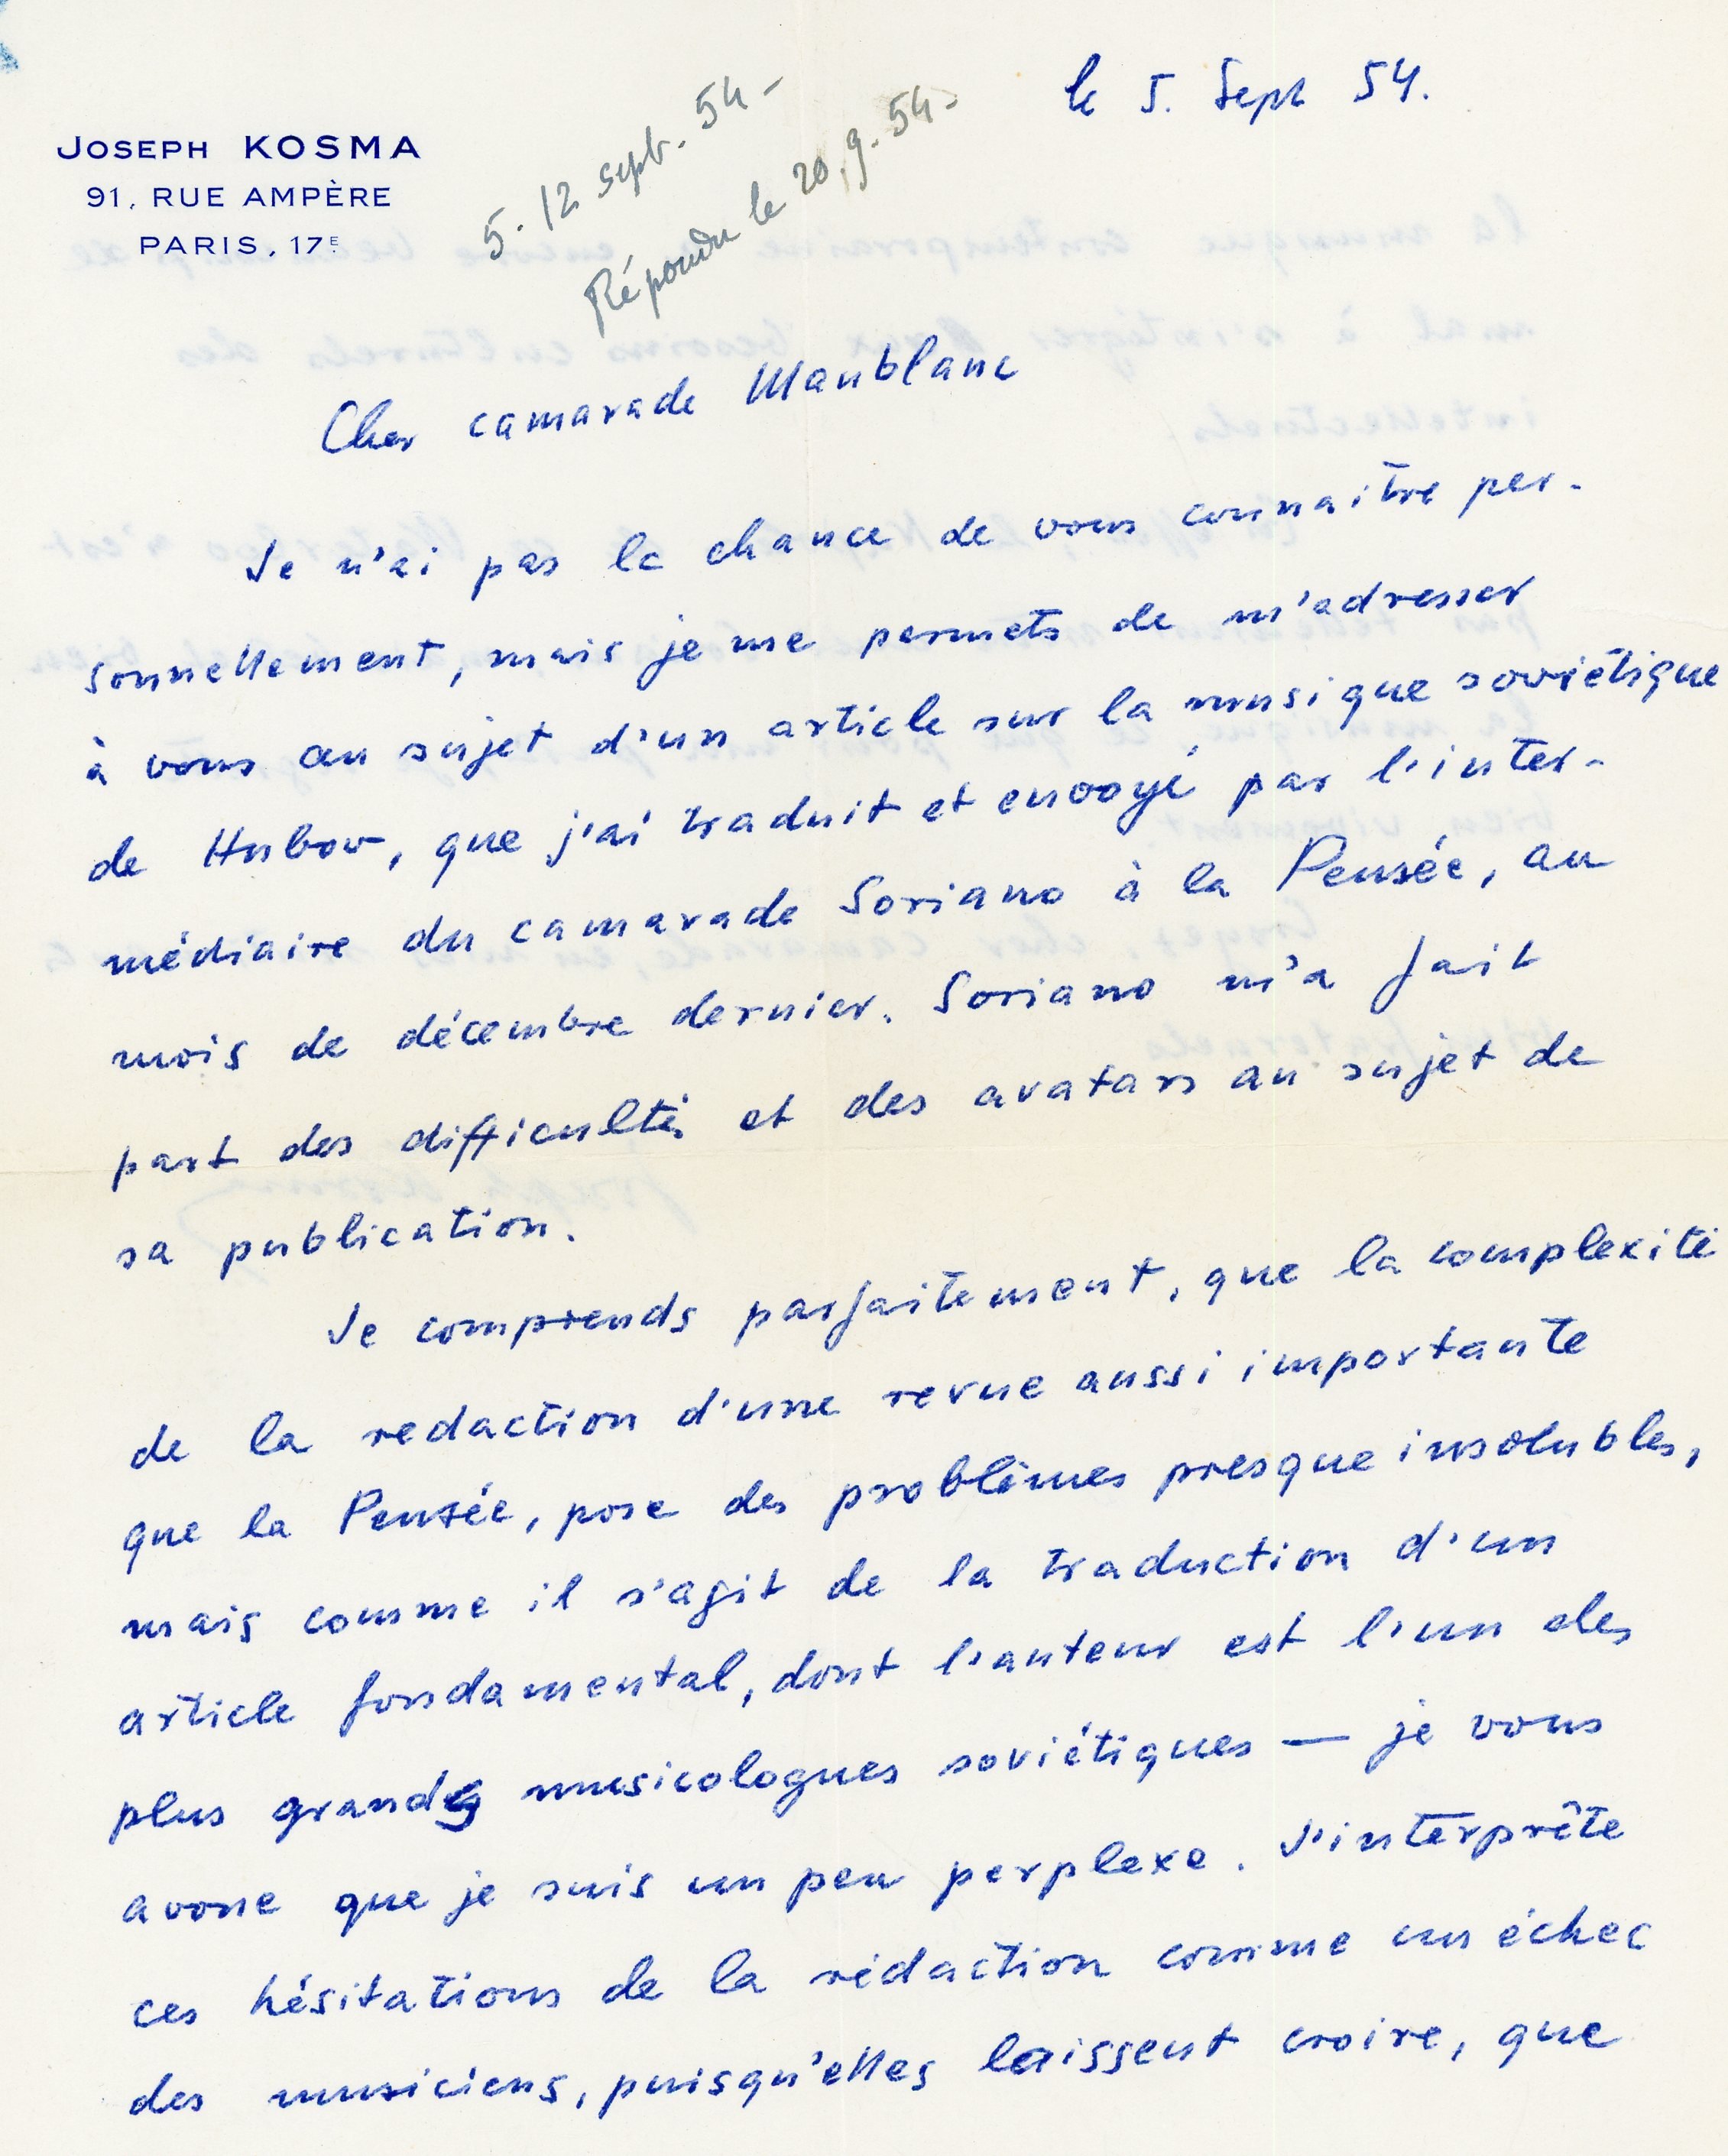 le 5. Sept 54.
JOSEPH KOSMA
91, RUE AMPÈRE
PARIS, 17E
5. 12 sept. 54 -
Répondu le 20.9.54-
Cher camarade Maublanc
Je n'ai pas la chance de vous connaitre per-
sonnellement, mais je me permets de m'adresser
à vous au sujet d'un article sur la musique soviétique
de Hubov, que j'ai traduit et envoyé par l'inter-
médiaire du camarade Soriano à la Pensée, au
mois de décembre dernier. Soriano m'a fait
part des difficultés et des avatars au sujet de
sa publication.
Je comprends parfaitement, que la complexité
de la redaction d'une revue aussi importante
que la Pensée, pose des problèmes presque insolubles,
mais comme il s'agit de la traduction d'un
article fondamental, dont l'auteur est l'un des
plus grands musicologues soviétiques — je vous
avoue que je suis un peu perplexe. J'interprête
ces hésitations de la rédaction comme un échec
des musiciens, puisqu'elles laissent croire, que